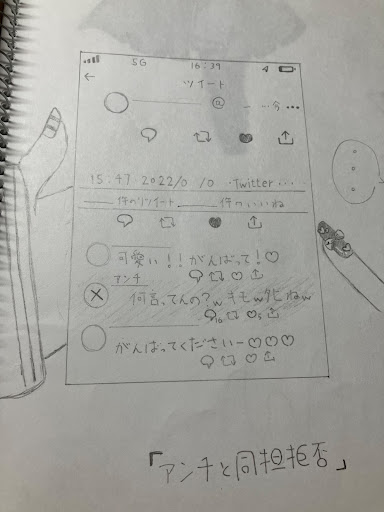 5G 16:39
ツイート
@
15:47・2022/0 /0 ・Twitter・・・
件のリツイート 件のいいね
可愛い!!がんばって!♡
アンチ
何言ってんの?wキモw死ねw
がんばってくださいー♡♡♡
「アンチと同担拒否」